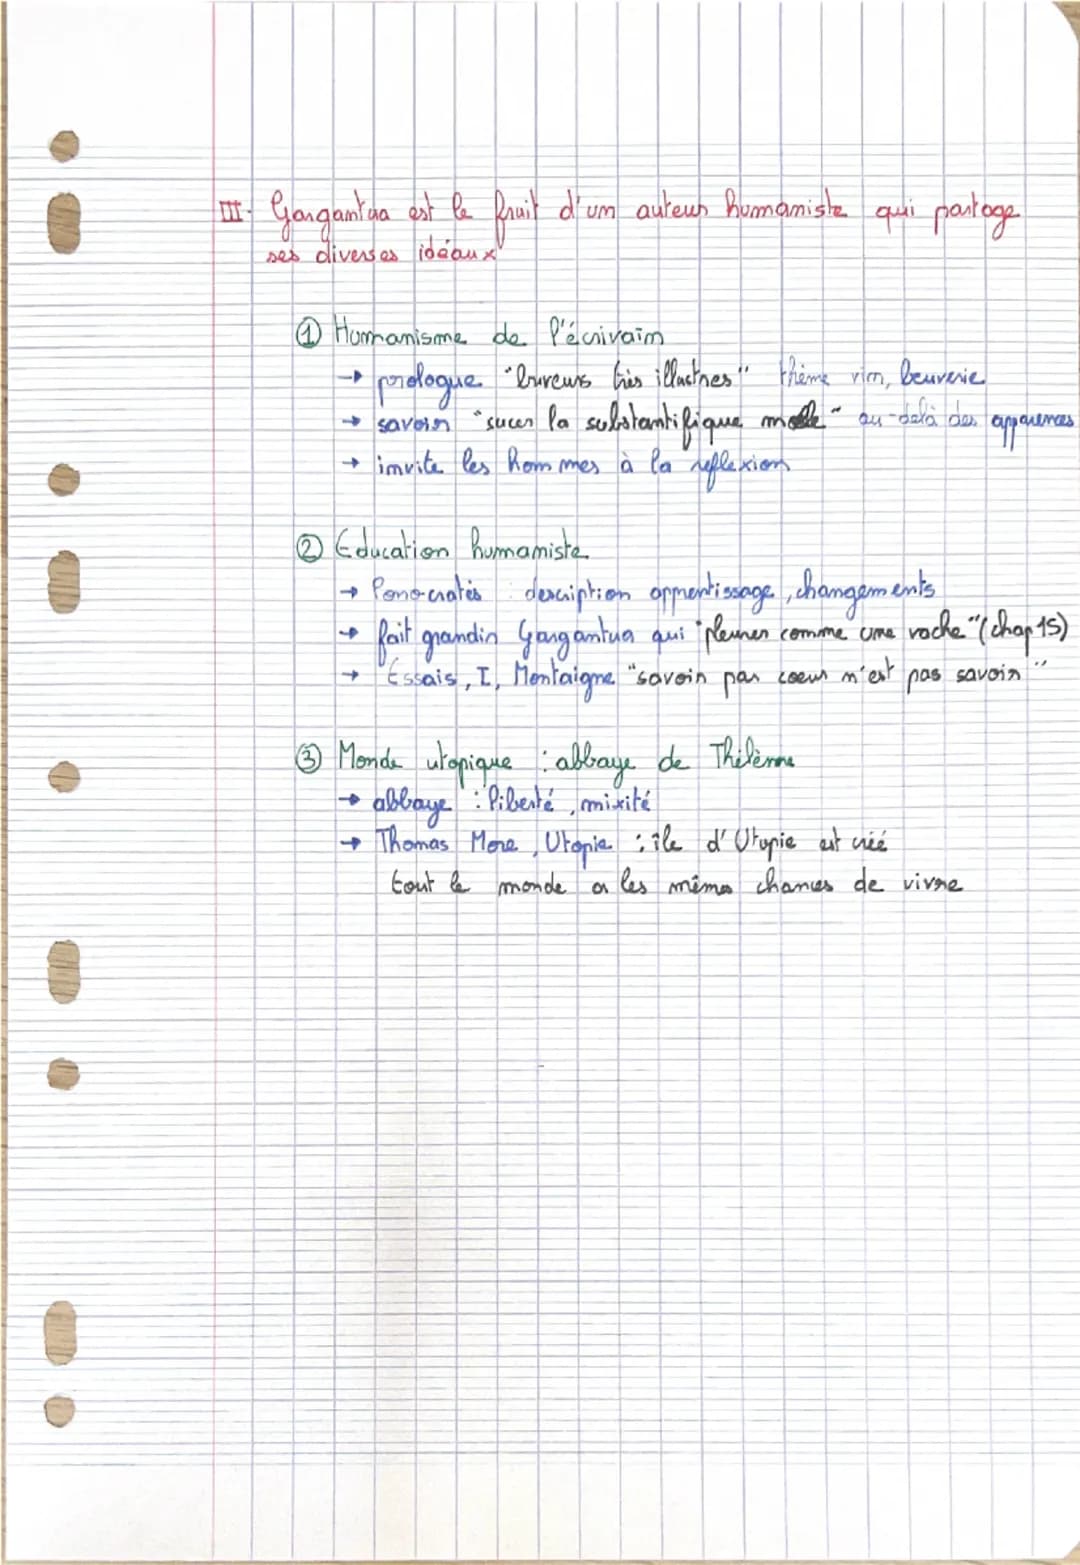 III- Gargantua est le fruit d'un auteur humaniste qui partage
ses diverses idéaux
① Humanisme de l'écrivain
→ prologue "buveurs très illustres" thème vin, beuverie
→ savoir "sucer la substantifique moelle" au-delà des apparences
→ invite les hommes à la réflexion
② Education humaniste
→ Ponocratès : description apprentissage, changements
→ fait grandir Gargantua qui "pleurer comme une vache" (chap 15)
→ Essais, I, Montaigne "savoir par coeur n'est pas savoir"
③ Monde utopique : abbaye de Thélème
→ abbaye : liberté, mixité
→ Thomas More, Utopie : île d'Utopie est créé
tout le monde a les mêmes chances de vivre